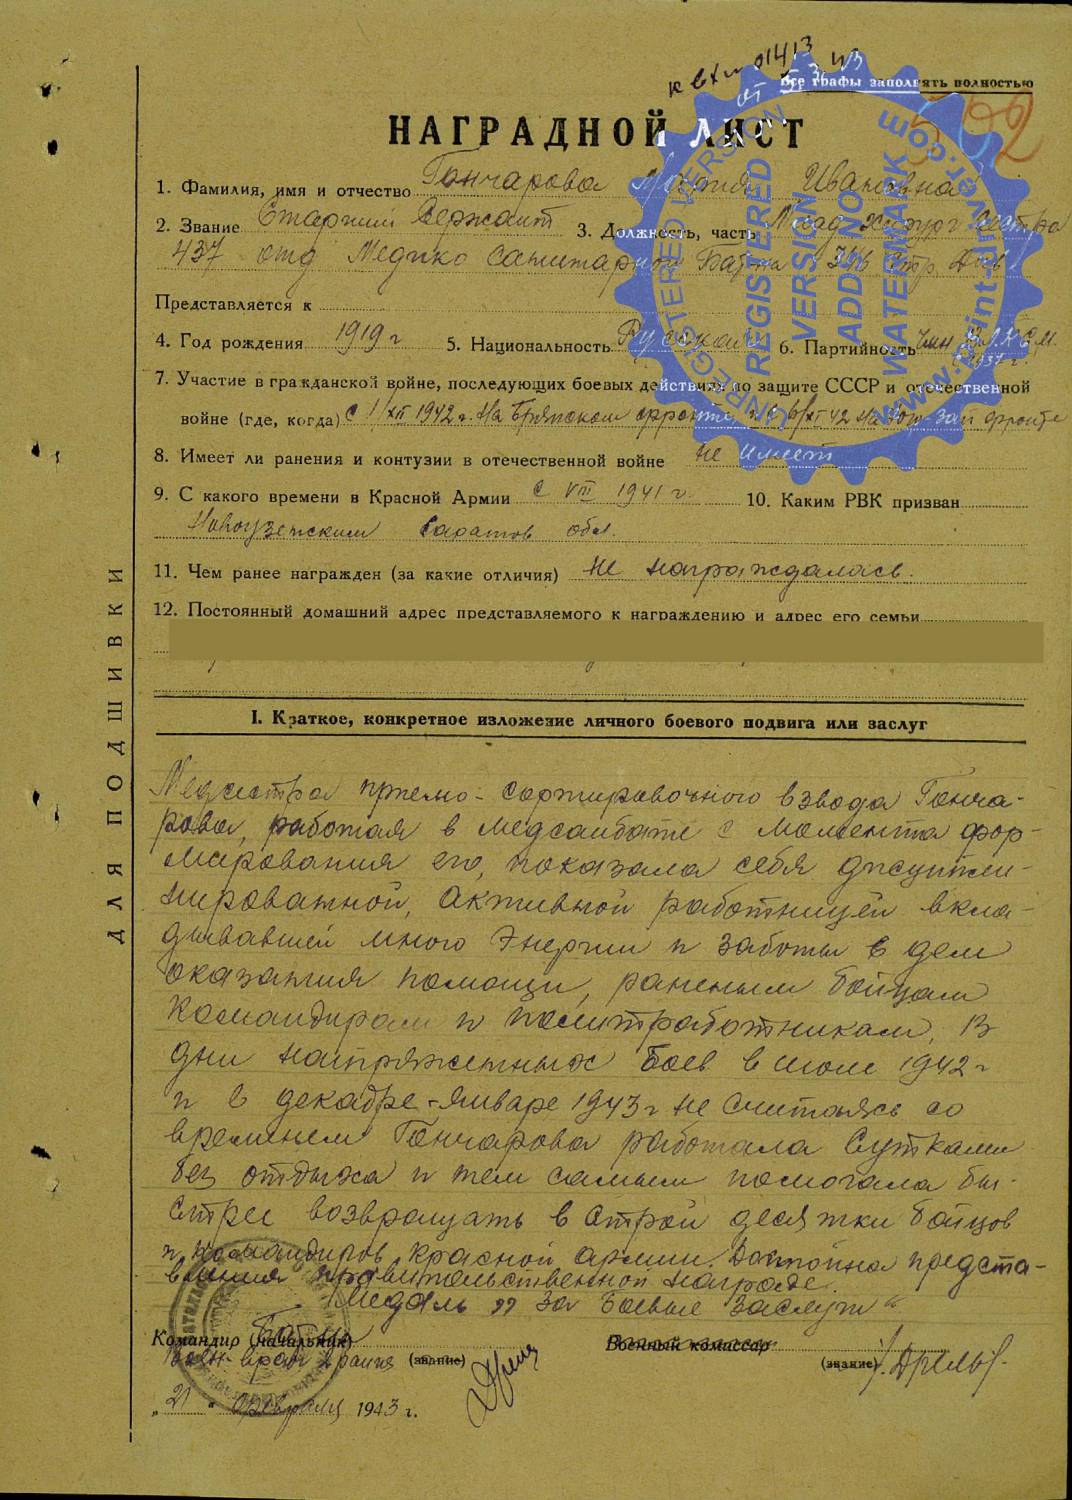 к вх № 01413
Все графы заполнять полностью
НАГРАДНОЙ ЛИСТ
1. Фамилия, имя и отчество Гончарова Мария Ивановна
2. Звание Старший Сержант 3. Должность, часть Млад. хирург. сестра
437 отд Медико санитарной Бат-на 346 стр. Див
Представляется к
4. Год рождения 1919 г 5. Национальность Русская 6. Партийность член В.Л.К.С.М.
1937 г.
7. Участие в гражданской войне, последующих боевых действиях по защите СССР и отечественной
войне (где, когда) с 1/XII 1942 г. На Брянском фронте и с 6/XI 42 на Юго-Зап фронте
8. Имеет ли ранения и контузии в отечественной войне не имеет
9. С какого времени в Красной Армии с VIII 1941 г. 10. Каким РВК призван
Новоузенским Саратов обл.
11. Чем ранее награжден (за какие отличия) не награждалась.
12. Постоянный домашний адрес представляемого к награждению и адрес его семьи
I. Краткое, конкретное изложение личного боевого подвига или заслуг
Медсестра приемо-сортировочного взвода Гонча-
рова, работая в медсанбате с момента фор-
мирования его, показала себя дисципли-
нированной, активной работницей вкла-
дывавшей много энергии и заботы в деле
оказания помощи, раненым бойцам
командирам и политработникам. В
дни напряженных боев в июле 1942 г
и в декабре-январе 1943 г не считаясь со
временем Гончарова работала сутками
без отдыха и тем самым помогала бы-
стрее возвращать в строй десятки бойцов
и командиров красной армии. Достойна предста-
вления правительственной награде.
медаль „За Боевые заслуги“
Командир (начальник) Бат-на
Воен-врач 2 ранга (звание)
Военный комиссар
(звание)
„21“ февраля 1943 г.
ДЛЯ ПОДШИВКИ
UNREGISTERED VERSION
REGISTERED
VERSION
ADDS NO
WATERMARK
www.print-driver.com